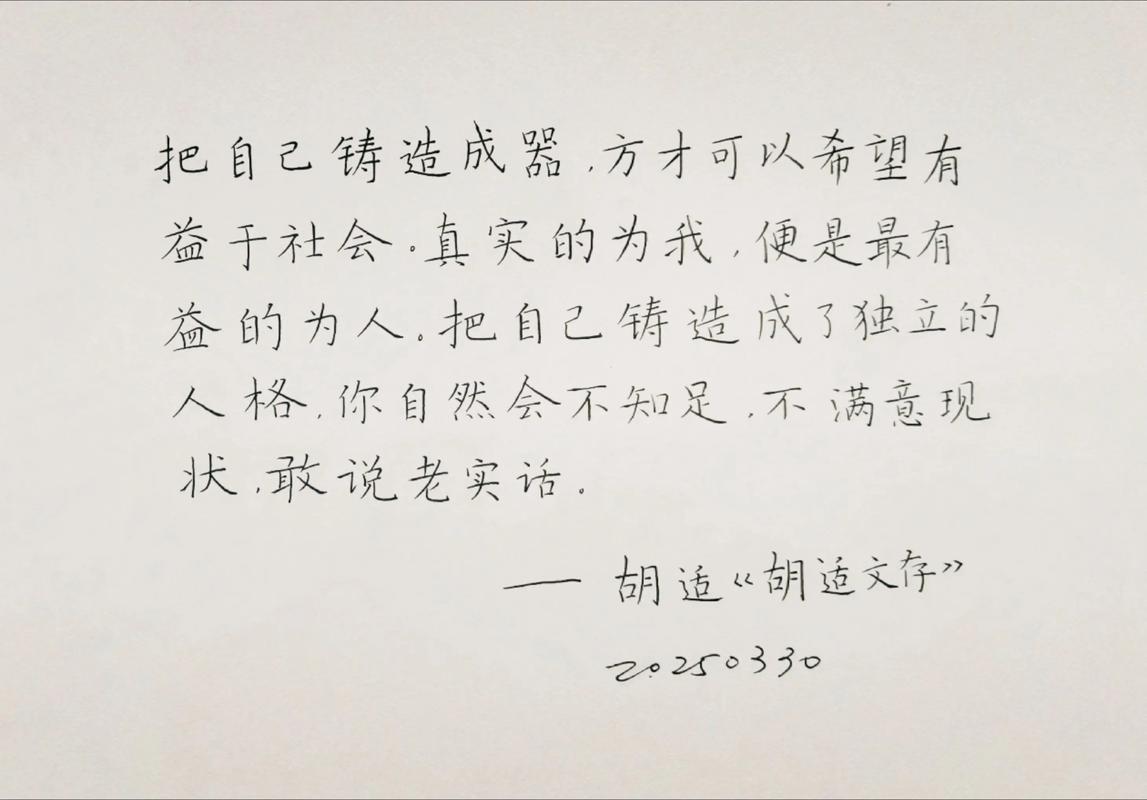 把自己铸造成器,方才可以希望有
益于社会。真实的为我,便是最有
益的为人。把自己铸造成了独立的
人格,你自然会不知足,不满意现
状,敢说老实话。
—— 胡适《胡适文存》
20250330